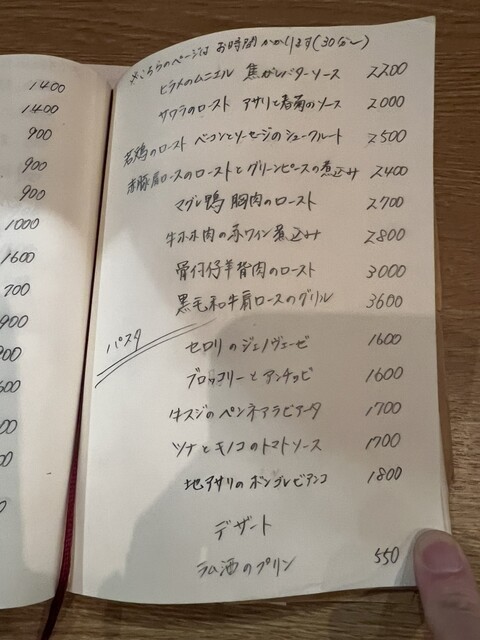 1400
1400
900
900
900
1000
1600
700
900
900
600
00
00
0
※こちらのページは お時間かかります(30分〜)
ヒラメのムニエル 焦がしバターソース 2200
サワラのロースト アサリと春菊のソース 2000
若鶏のロースト ベーコンとソーセージのシュークルート 2500
赤豚肩ロースのローストとグリーンピースの煮込み 2400
マグレ鴨胸肉のロースト 2700
牛ホホ肉の赤ワイン煮込み 2800
骨付仔羊背肉のロースト 3000
黒毛和牛肩ロースのグリル 3600
パスタ
セロリのジェノヴェーゼ 1600
ブロッコリーとアンチョビ 1600
牛スジのペンネアラビアータ 1700
ツナとキノコのトマトソース 1700
地アサリのボンゴレビアンコ 1800
デザート
ラム酒のプリン 550